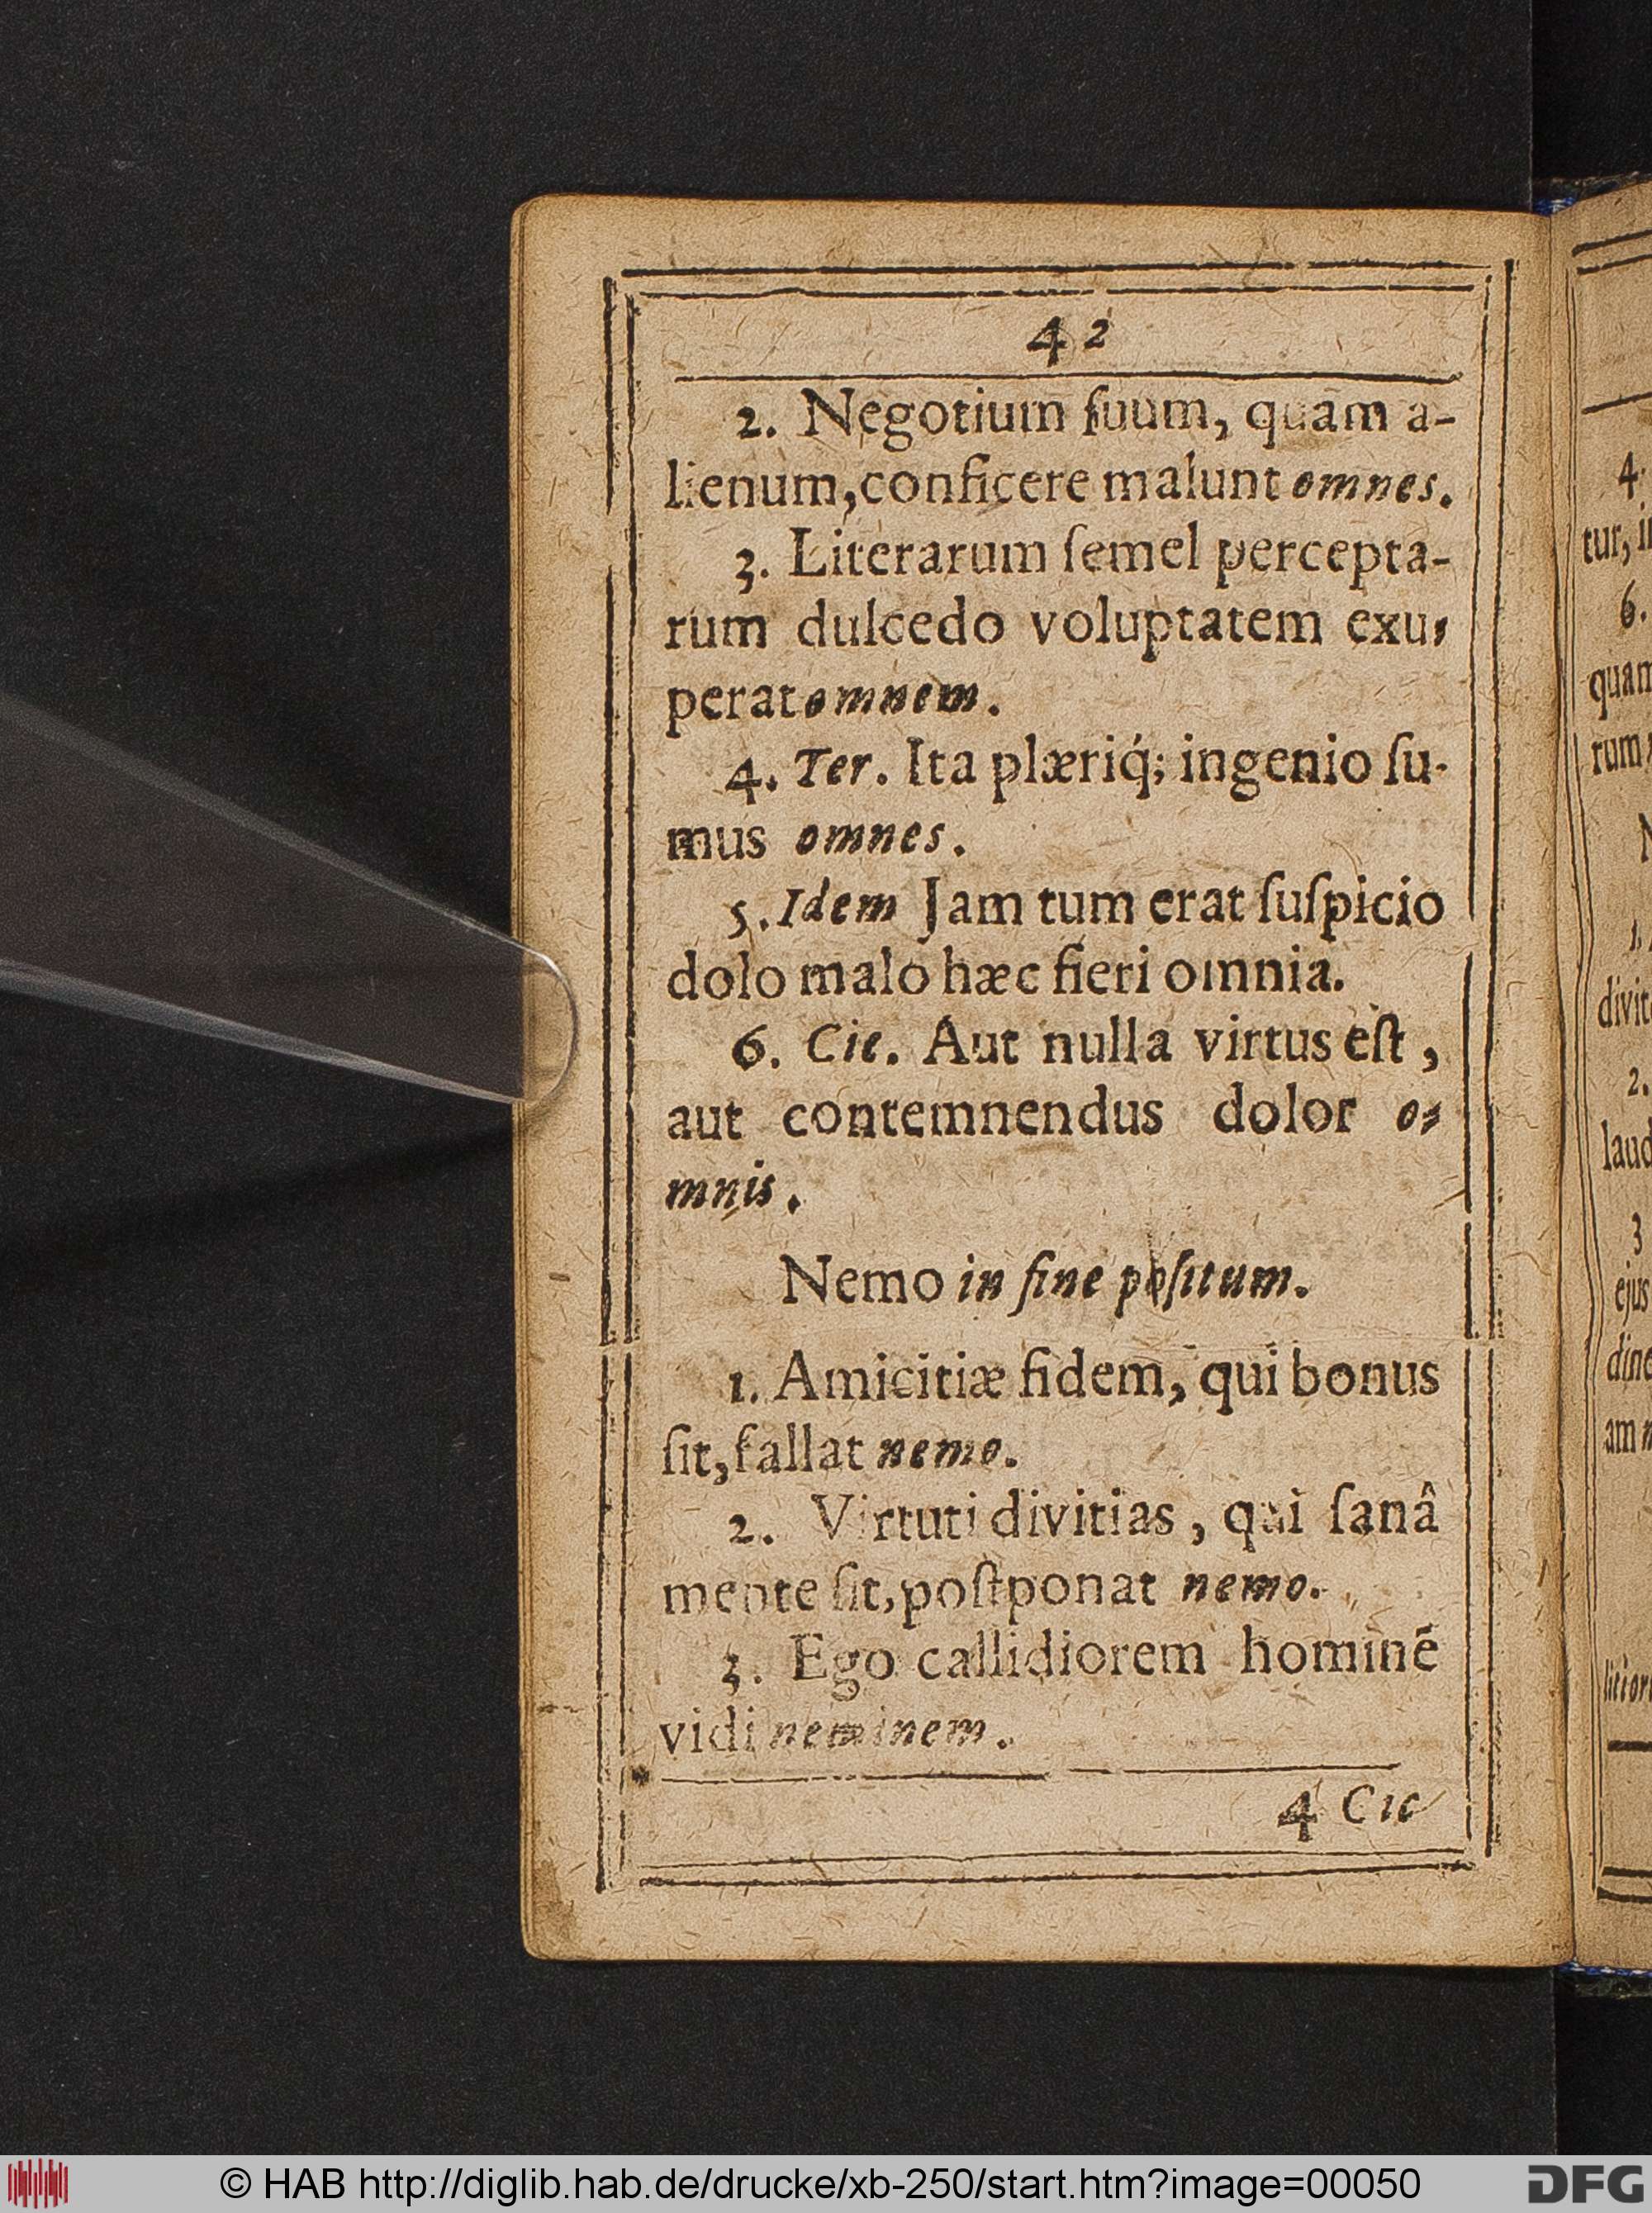 42
2. Negotium ſuum, quàm a-
lienum, conficere malunt omnes.
3. Literarum ſemel percepta-
rum dulcedo voluptatem exu,
perat omnem.
4. Ter. Ita plæriq́; ingenio ſu-
mus omnes.
5. Idem Jam tum erat ſuſpicio
dolo malo hæc fieri omnia.
6. Cic. Aut nulla virtus eſt,
aut contemnendus dolor o-
mnis.
Nemo in fine poſitum.
1. Amicitiæ fidem, qui bonus
ſit, fallat nemo.
2. Virtuti divitias, qui ſanâ
mente ſit, poſtponat nemo.
3. Ego callidiorem hominē
vidi neminem.
4 Cic
4.
tur,
6.
quam
rum
1.
divit
2.
laud
3
ejus
dine
am
© HAB http://diglib.hab.de/drucke/xb-250/start.htm?image=00050
DFG